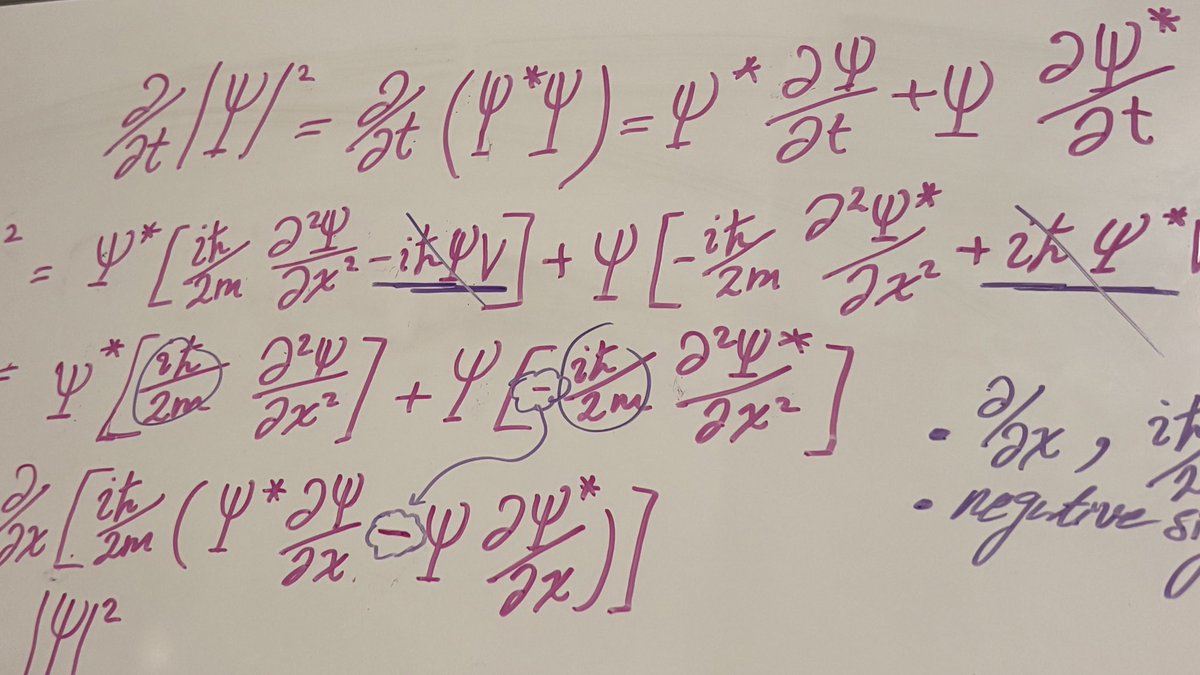 ∂/∂t |Ψ|² = ∂/∂t (Ψ*Ψ) = Ψ* ∂Ψ/∂t + Ψ ∂Ψ*/∂t
² = Ψ* [iħ/2m ∂²Ψ/∂x² - iħΨV] + Ψ [-iħ/2m ∂²Ψ*/∂x² + iħ Ψ*
= Ψ* [iħ/2m ∂²Ψ/∂x²] + Ψ [- iħ/2m ∂²Ψ*/∂x²]
∂/∂x [iħ/2m (Ψ* ∂Ψ/∂x - Ψ ∂Ψ*/∂x)]
|Ψ|²
• ∂/∂x, iħ/2
• negative